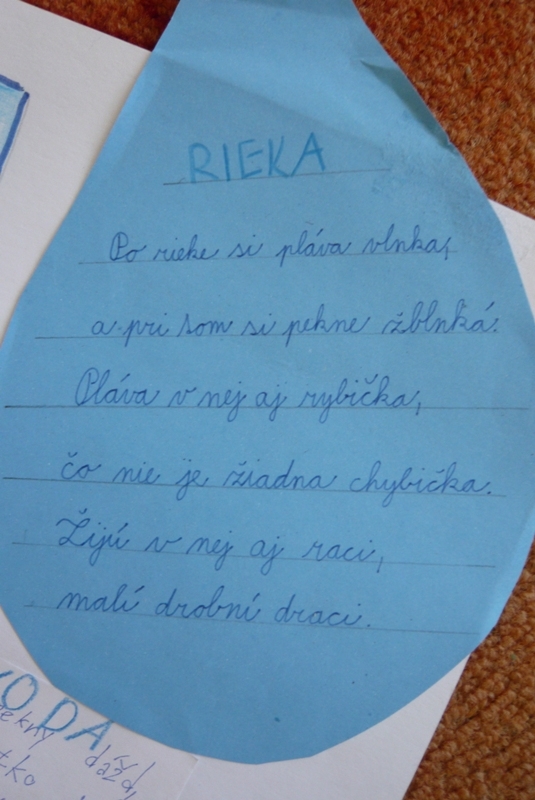 RIEKA
Po rieke si pláva vlnka,
a pri tom si pekne žblnká.
Pláva v nej aj rybička,
čo nie je žiadna chybička.
Žijú v nej aj raci,
malí drobní draci.
ODA
dážď,